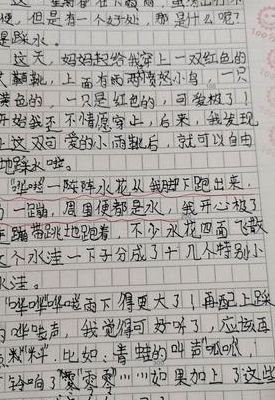 星期都在下
便，但是有一个好处，那是什么呢？
是踩水。
这天，妈妈起给我穿上一双红色的
上面有两两愤怒小鸟，一只
黄色的，一只是红色的，可爱极了！
开始我歪不情愿穿上，后来，我发现
上这双可爱的小雨靴后，就可以自由
地踩水啦。
"哗啦"一阵阵水花从我脚下跑出来，
一蹦，周围便都是水，我开心极了
蹦带跳地跑着，不少水花四面飞散
这个水洼一下子分成了十几个特别小
水洼。
"哗哗"哗哗雨下得更大了！再配上踩
的哗啦声，我觉得可好听了，应该再
点米"样，比如：青蛙的叫声"呱呱，
铃响了"零零"……如果加上了这些